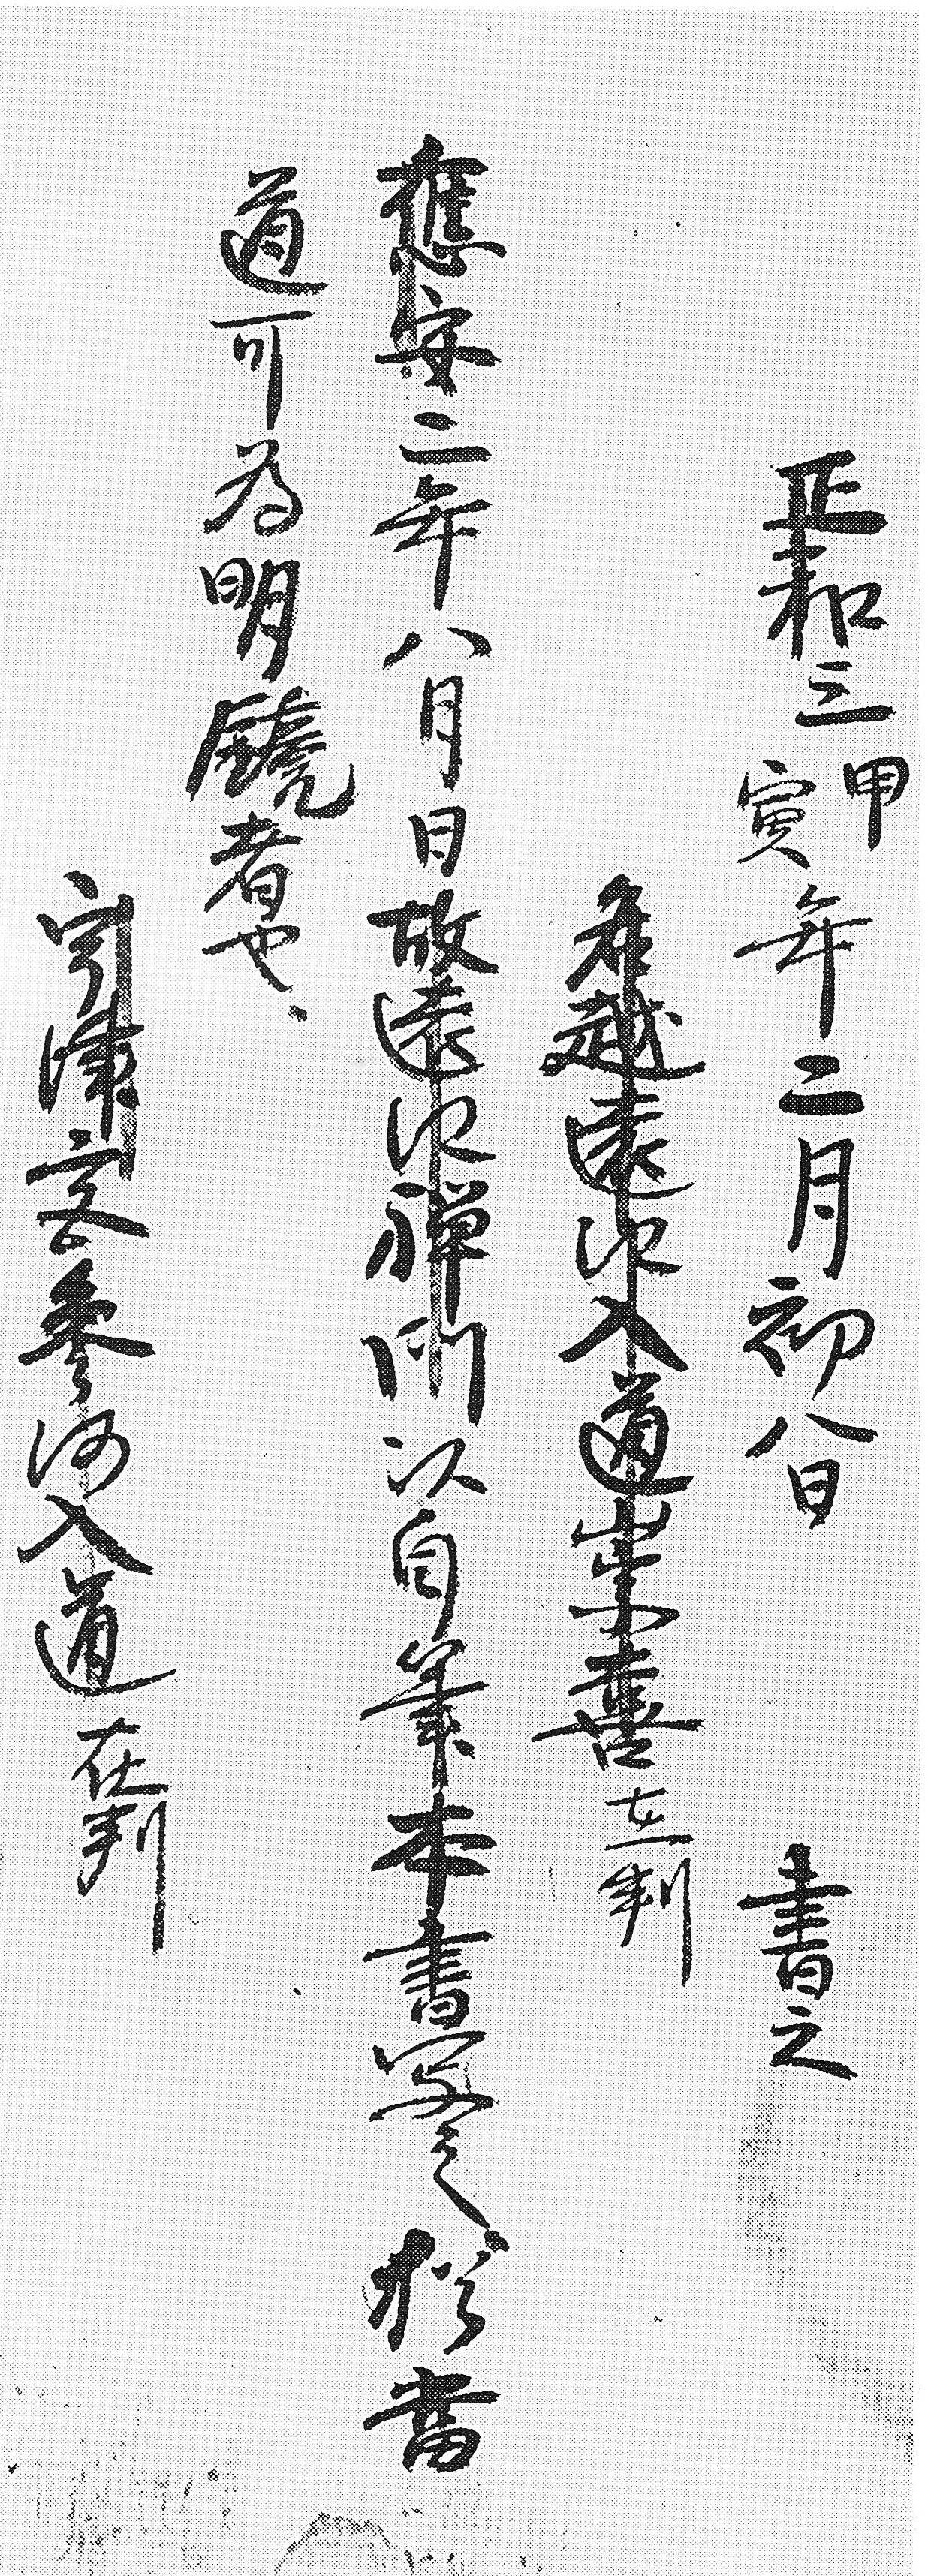 正和三甲寅年二月初八日 書之
名越遠江入道崇喜在判
應安二年八月日故遠江禅門以自筆本書写之於當
道可為明鏡者也
宇津宮参河入道在判